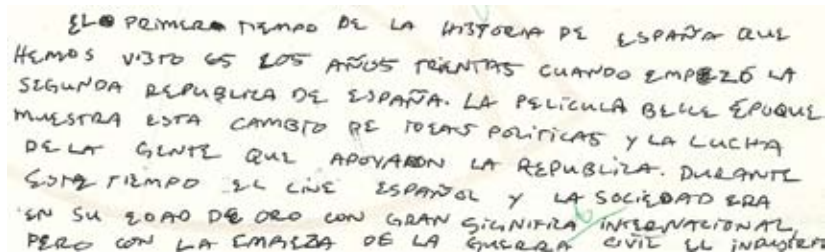 EL PRIMERA TIEMPO DE LA HISTORIA DE ESPAÑA QUE
HEMOS VISTO ES LOS AÑOS TRENTAS CUANDO EMPEZÓ LA
SEGUNDA REPUBLICA DE ESPAÑA. LA PELÍCULA BELLE ÉPOQUE
MUESTRA ESTA CAMBIO DE IDEAS POLITICAS Y LA LUCHA
DE LA GENTE QUE APOYARON LA REPUBLICA. DURANTE
ESTE TIEMPO EL CINE ESPAÑOL Y LA SOCIEDAD ERA
EN SU EDAD DE ORO CON GRAN SIGNIFICA INTERNACIONAL,
PERO CON LA EMPIEZA DE LA GUERRA CIVIL EL INDUSTRIA